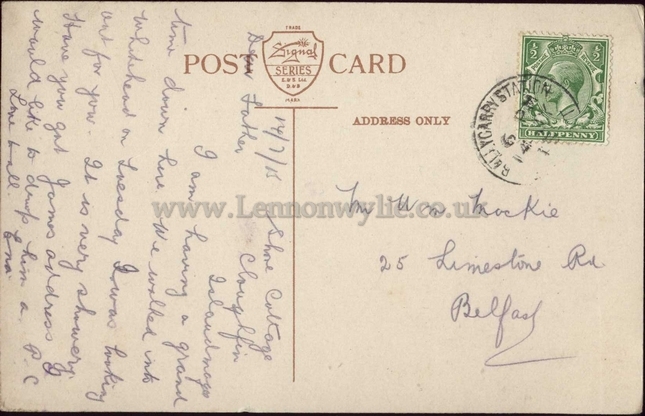 TRADE
Signal
SERIES
E. & S. Ltd.
D & B
MARK
POST CARD
ADDRESS ONLY
½ ½
HALFPENNY
BALLYCARRY STATION
www.Lennonwylie.co.uk
Shore Cottage
Cloughfin
Islandmagee
14/7/15
Dear Father
I am having a grand
time down here. We walked into
Whitehead on Tuesday I was looking
out for you. It is very showery.
Have you got James address I
would like to drop him a P.C
Love to all. Ena.
Mr Wm Mockie
25 Limestone Rd
Belfast